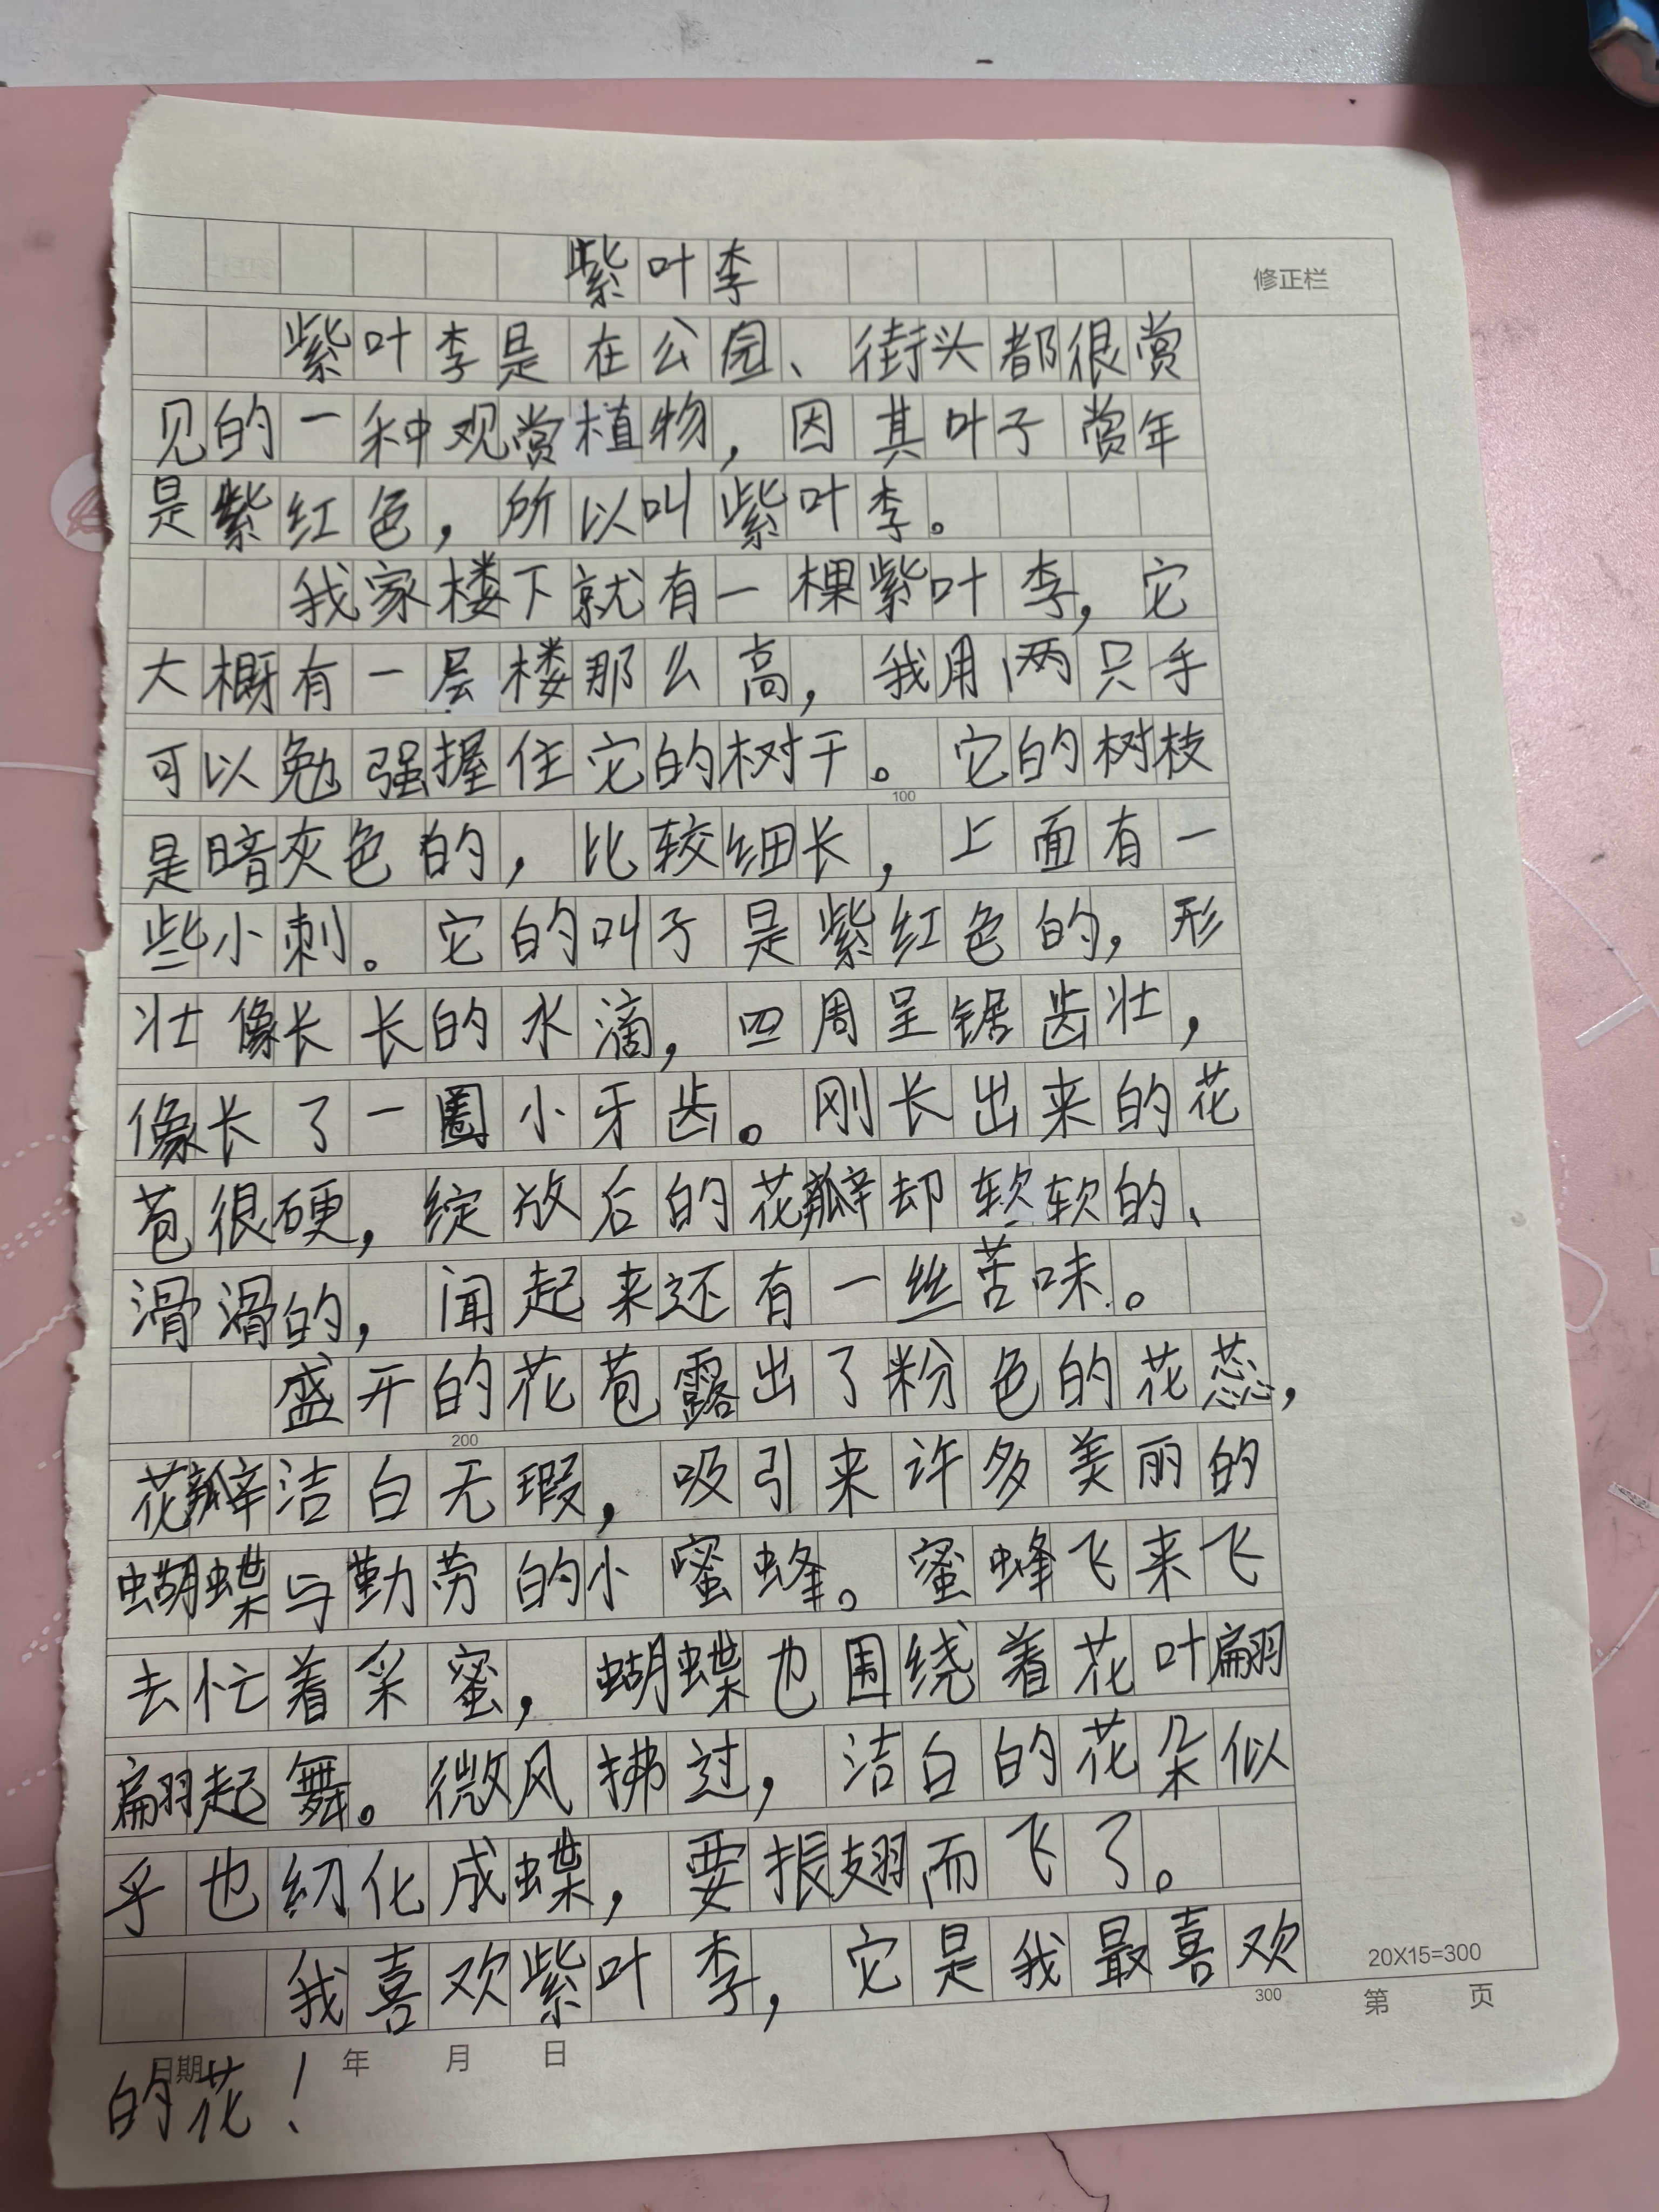 紫叶李
修正栏
紫叶李是在公园、街头都很赏
见的一种观赏植物，因其叶子赏年
是紫红色，所以叫紫叶李。
我家楼下就有一棵紫叶李，它
大概有一层楼那么高，我用两只手
可以勉强握住它的树干。它的树枝
100
是暗灰色的，比较细长，上面有一
些小刺。它的叫子是紫红色的，形
壮像长长的水滴，四周呈锯齿壮，
像长了一圈小牙齿。刚长出来的花
苞很硬，绽放后的花瓣却软软的、
滑滑的，闻起来还有一丝苦味。
盛开的花苞露出了粉色的花蕊，
200
花瓣洁白无瑕，吸引来许多美丽的
蝴蝶与勤劳的小蜜蜂。蜜蜂飞来飞
去忙着采蜜，蝴蝶也围绕着花叶翩
翩起舞。微风拂过，洁白的花朵似
乎也幻化成蝶，要振翅而飞了。
我喜欢紫叶李，它是我最喜欢
20X15=300
300 第 页
日期 年 月 日
的花！